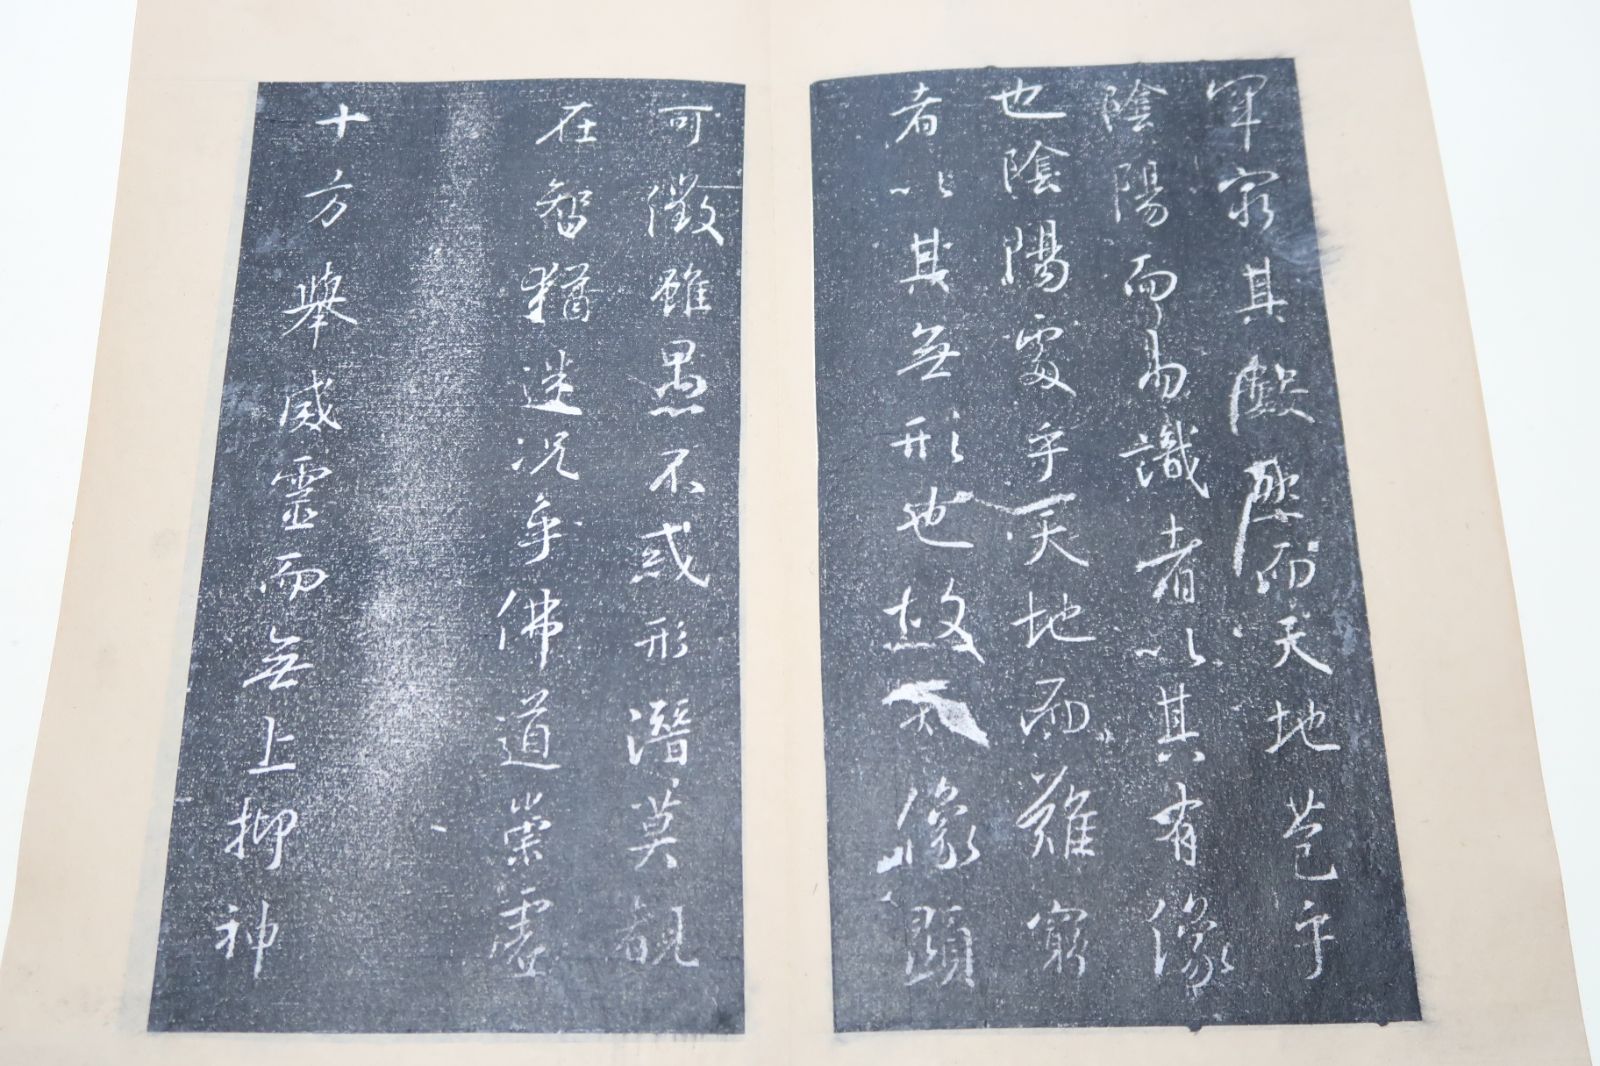 罕窮其數然而天地苞乎
陰陽而易識者以其有像
也陰陽處乎天地而難窮
者以其無形也故知像顯
可徵雖愚不惑形潛莫覩
在智猶迷況乎佛道崇虛
十方舉威靈而無上抑神